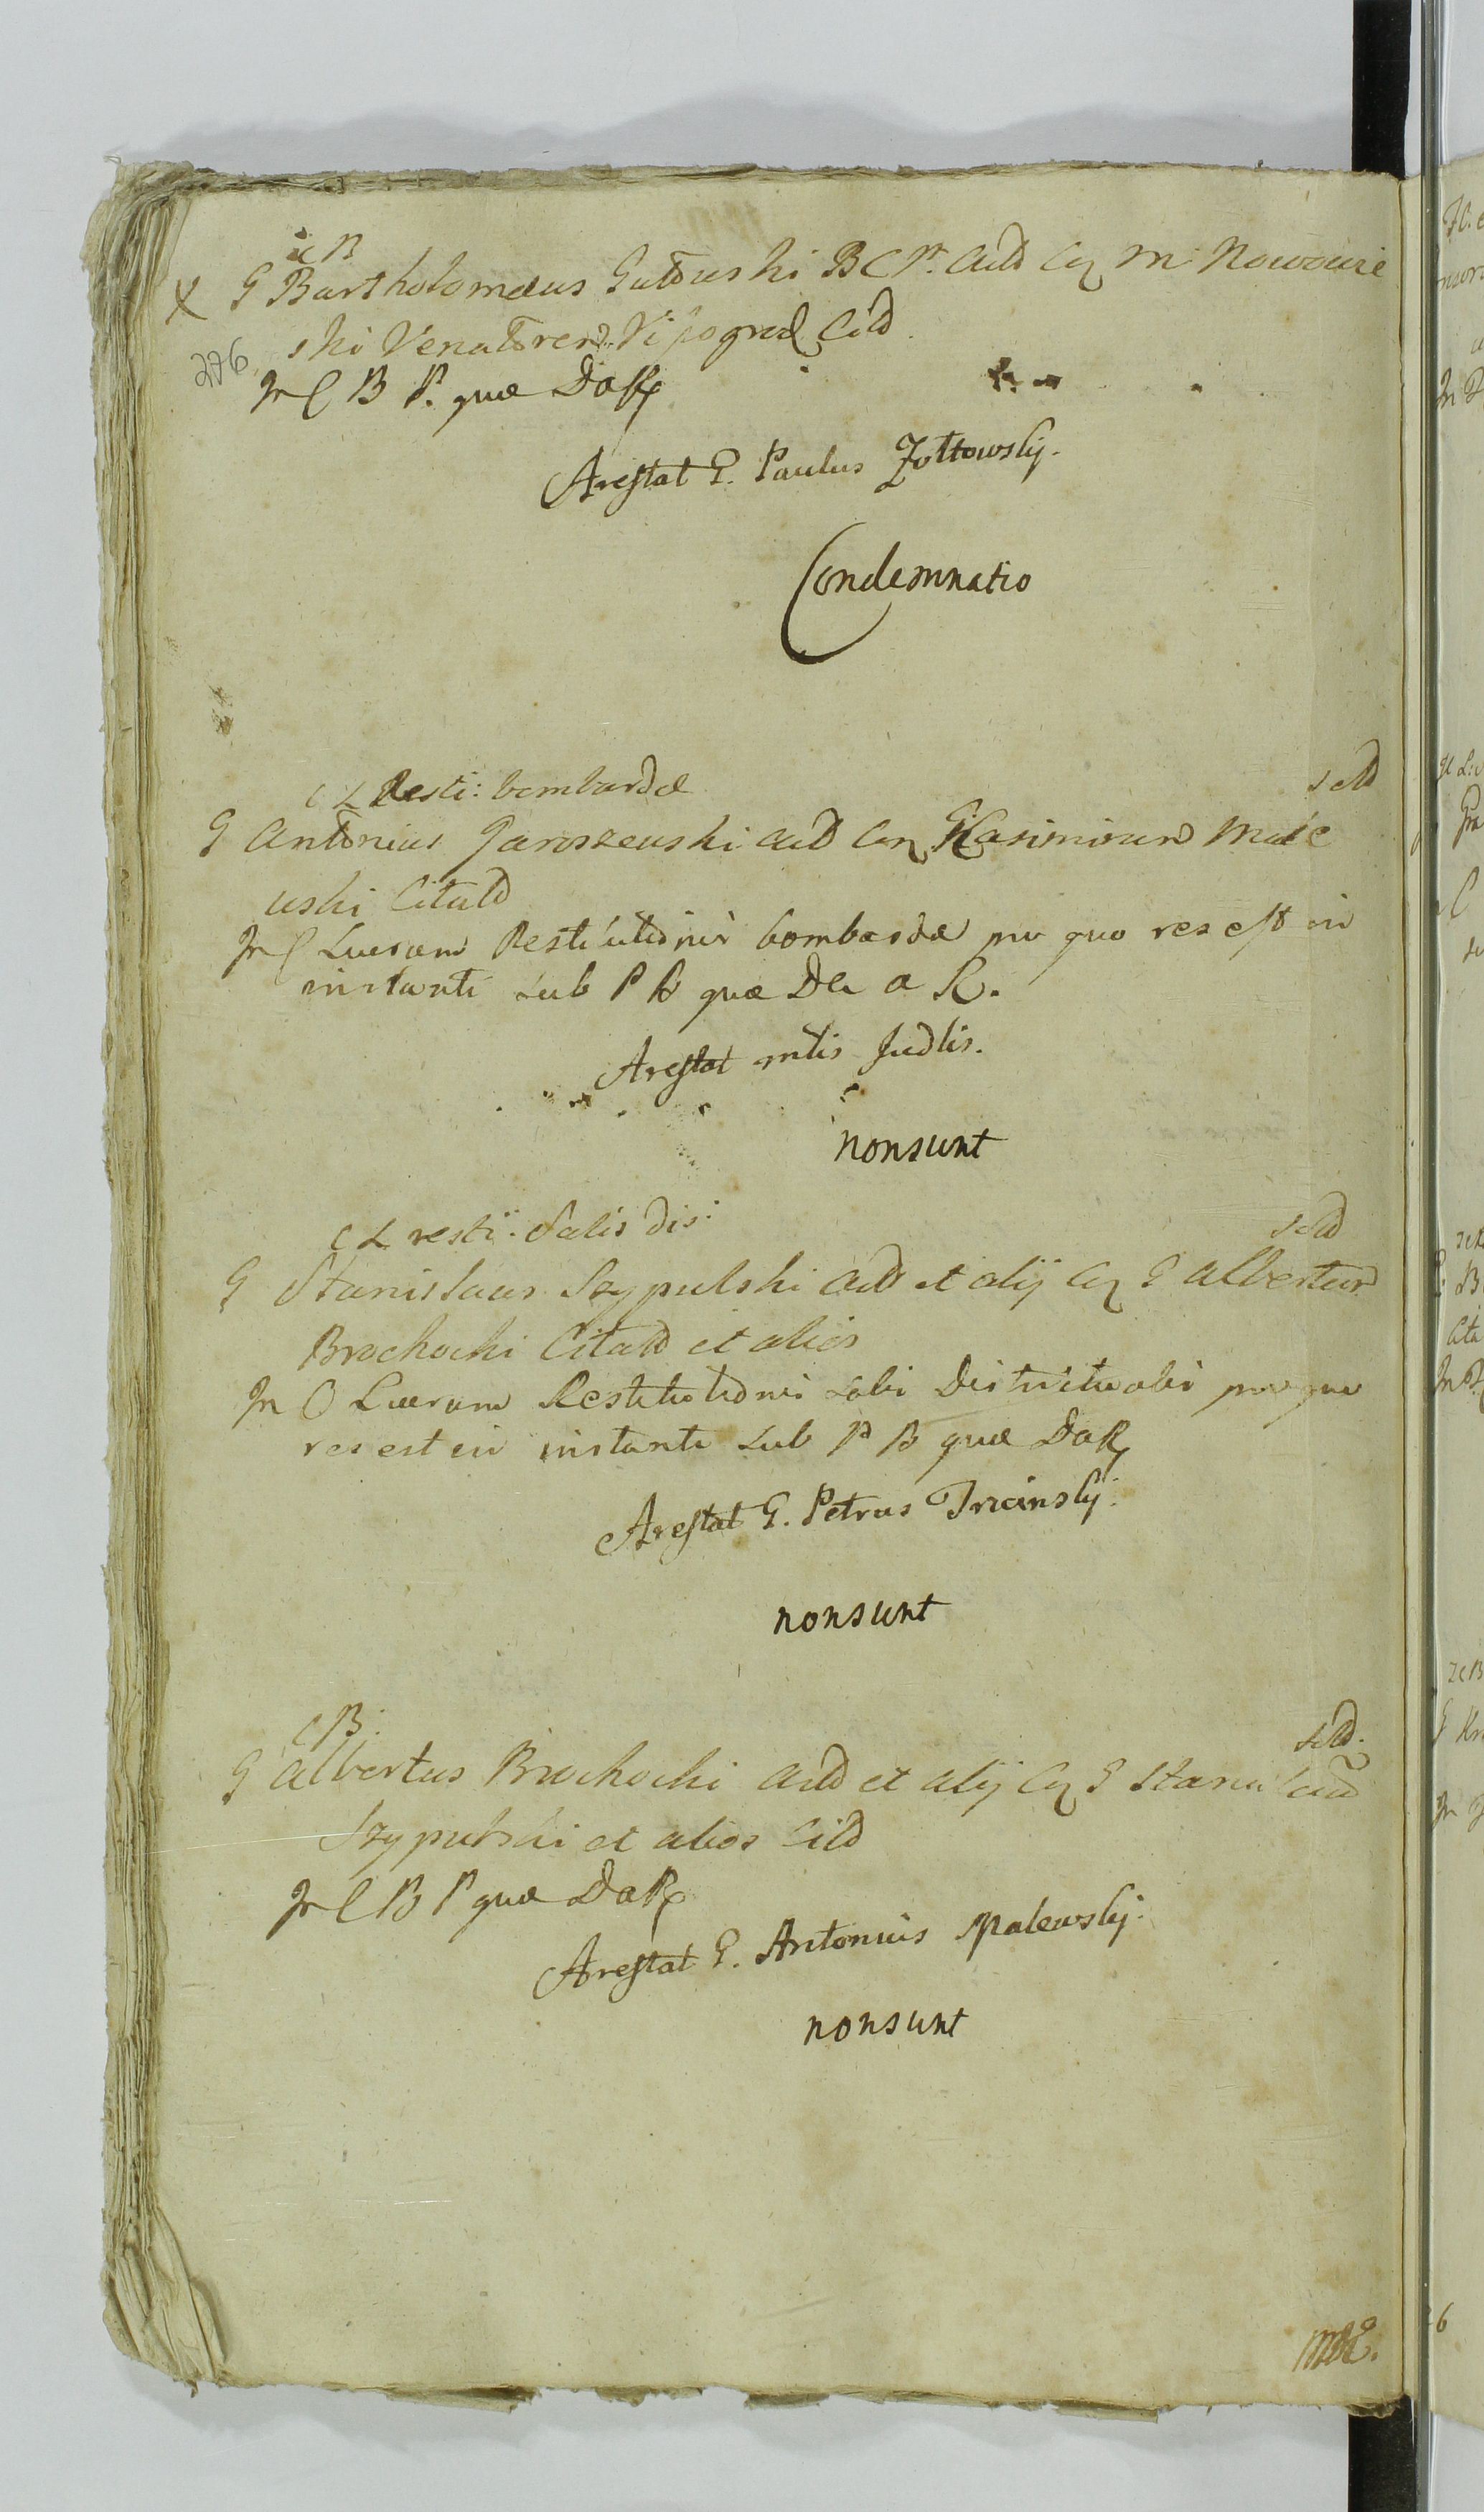 ic B
X G Bartholomæus Gutowski B C P. Actd Con M Nowowie
ski Venatorem Wisogrod Citd
226
In C B P. quæ DaR
Arestat G. Paulus Żołtowskj.
Condemnatio
C L Resti: bombardæ
sctd
G Antonius Jaroszewski actd Con G Kasimirum Male
wski Citatd
In C Luerum Restitutionis bombardæ pro quo res est in
instanti sub P B quæ De a R.
Arestat mtis Judlis.
nonsunt
C L resti: Salis dis:
sctd
G Stanislaus Szypulski Actd et alij Con G Albertum
Brochocki Citatd et alios
In C Luerum Restitutionis salis Districtualis pro quo
res est in instanti sub P B quæ DaR
Arestat G. Petrus Trzcinskj.
nonsunt
C B:
sctd.
G Albertus Brochocki Actd et alij Con G Stanislaum
Szypulski et alios Citd
In C B P quæ DaR
Arestat G. Antonius Malewskj.
nonsunt